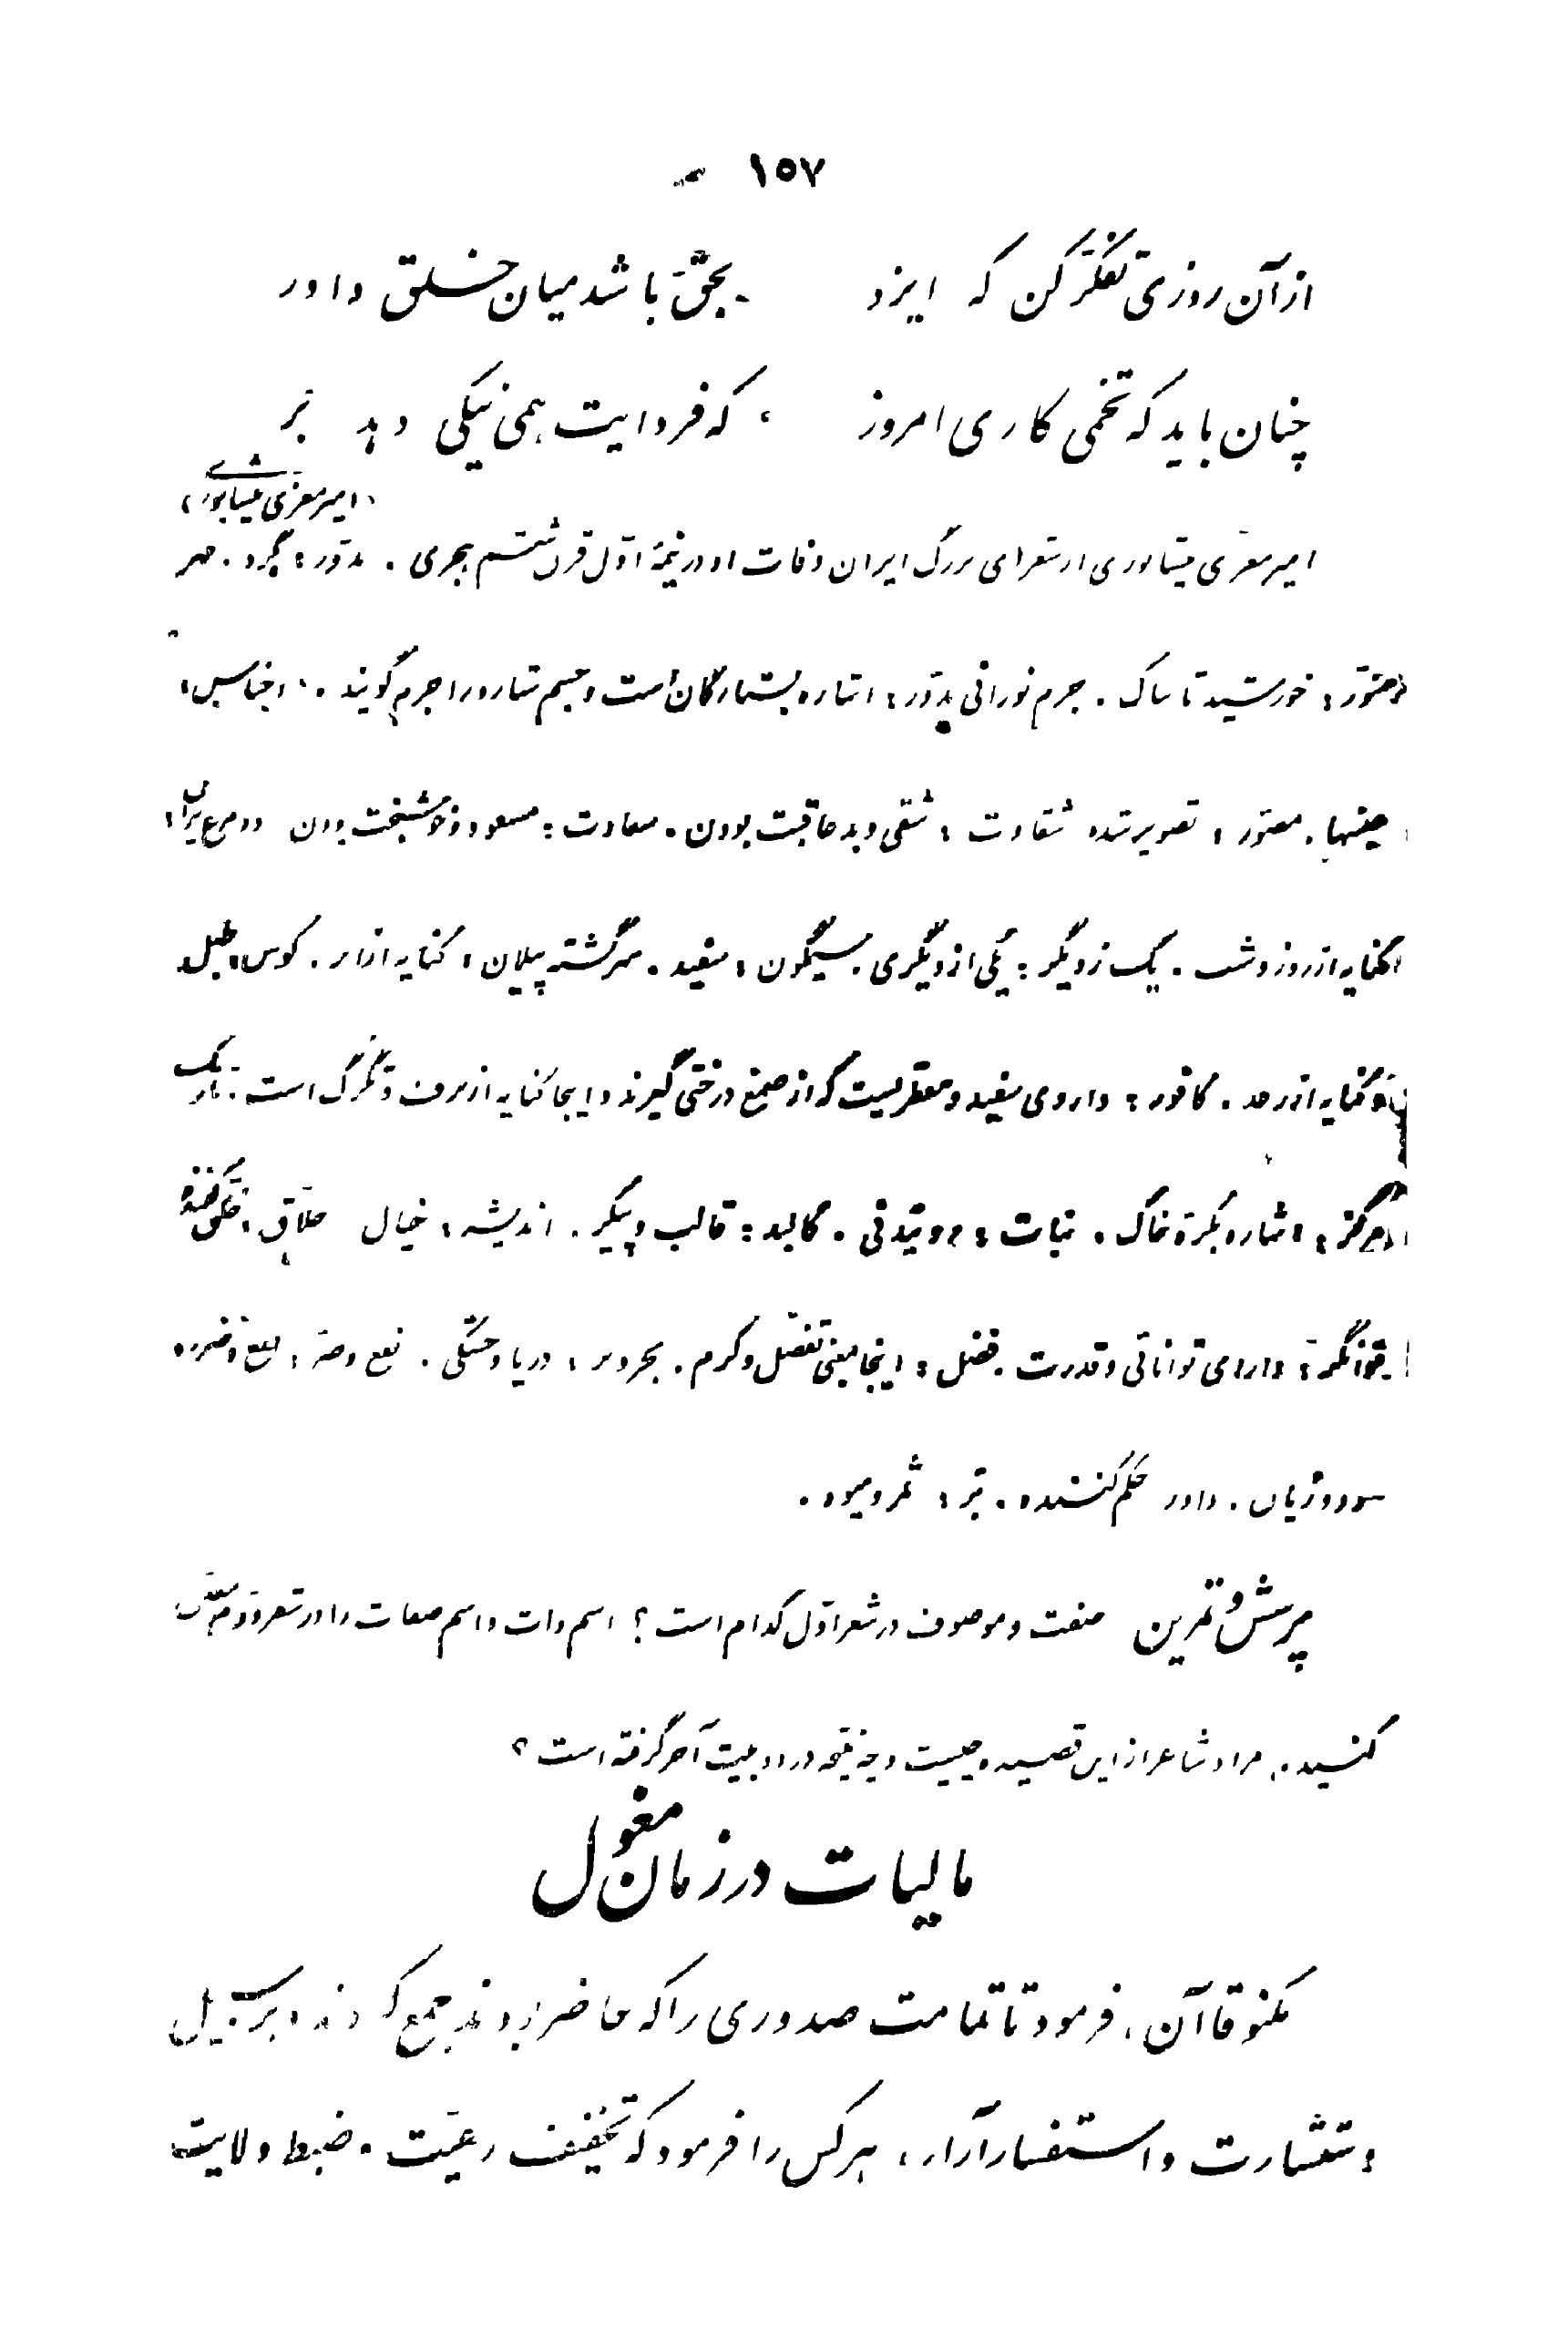 ۱۵۷
از آن روزی تفکّر کن که ایزد بحقّ باشد میان خلق داور
چنان باید که تخمی کاری امروز که فردایت همی نیکی دهد بر
(امیر معزّی نیشابوری)
امیر معزّی نیشابوری از شعرای بزرگ ایران وفات او در نیمهٔ اوّل قرن ششم هجری . مدوّر : گرد . مهر
منوّر : خورشید تابناک . جرم نورانی مدوّر : اشاره بستارگان است و جسم ستاره را جرم گویند . اجناس :
جنسها . مصوّر : تصویر شده شقاوت : شقی و بدعاقبت بودن . سعادت : مسعود و خوشبخت بودن دو مرغ پران :
کنایه از روز و شب . یک ز دیگر : یکی از دیگری . سیمگون : سفید . سرگشته پیلان : کنایه از ابر . کوس : طبل
و کنایه از رعد . کافور : داروی سفید و معطریست که از صمغ درختی گیرند و اینجا کنایه از برف و تگرگ است . تاریک
مرکز : اشاره بکرهٔ خاک . نبات : روئیدنی . کالبد : قالب و پیکر . اندیشه : خیال خلّاق : خلق کننده
توانگر : دارای توانائی و قدرت . فضل : اینجا بمعنی تفضّل و کرم . بحر و بر : دریا و خشکی . نفع و ضر : نفع و ضرر و
سود و زیان . داور حکم کننده . بَر : ثمر و میوه .
پرسش و تمرین صفت و موصوف در شعر اوّل کدام است ؟ اسم ذات و اسم صفات را در شعر دوّم معیّن
کنید . مراد شاعر از این قصیده چیست و چه نتیجه در دو بیت آخر گرفته است ؟
مالیات در زمان مغول
منکو قاآن ، فرمود تا تمامت صدوری را که حاضر بودند جمع کردند و بر سبیل
استشارت و استفسار آراء ، هر کس را فرمود که تخفیف رعیّت و ضبط ولایت